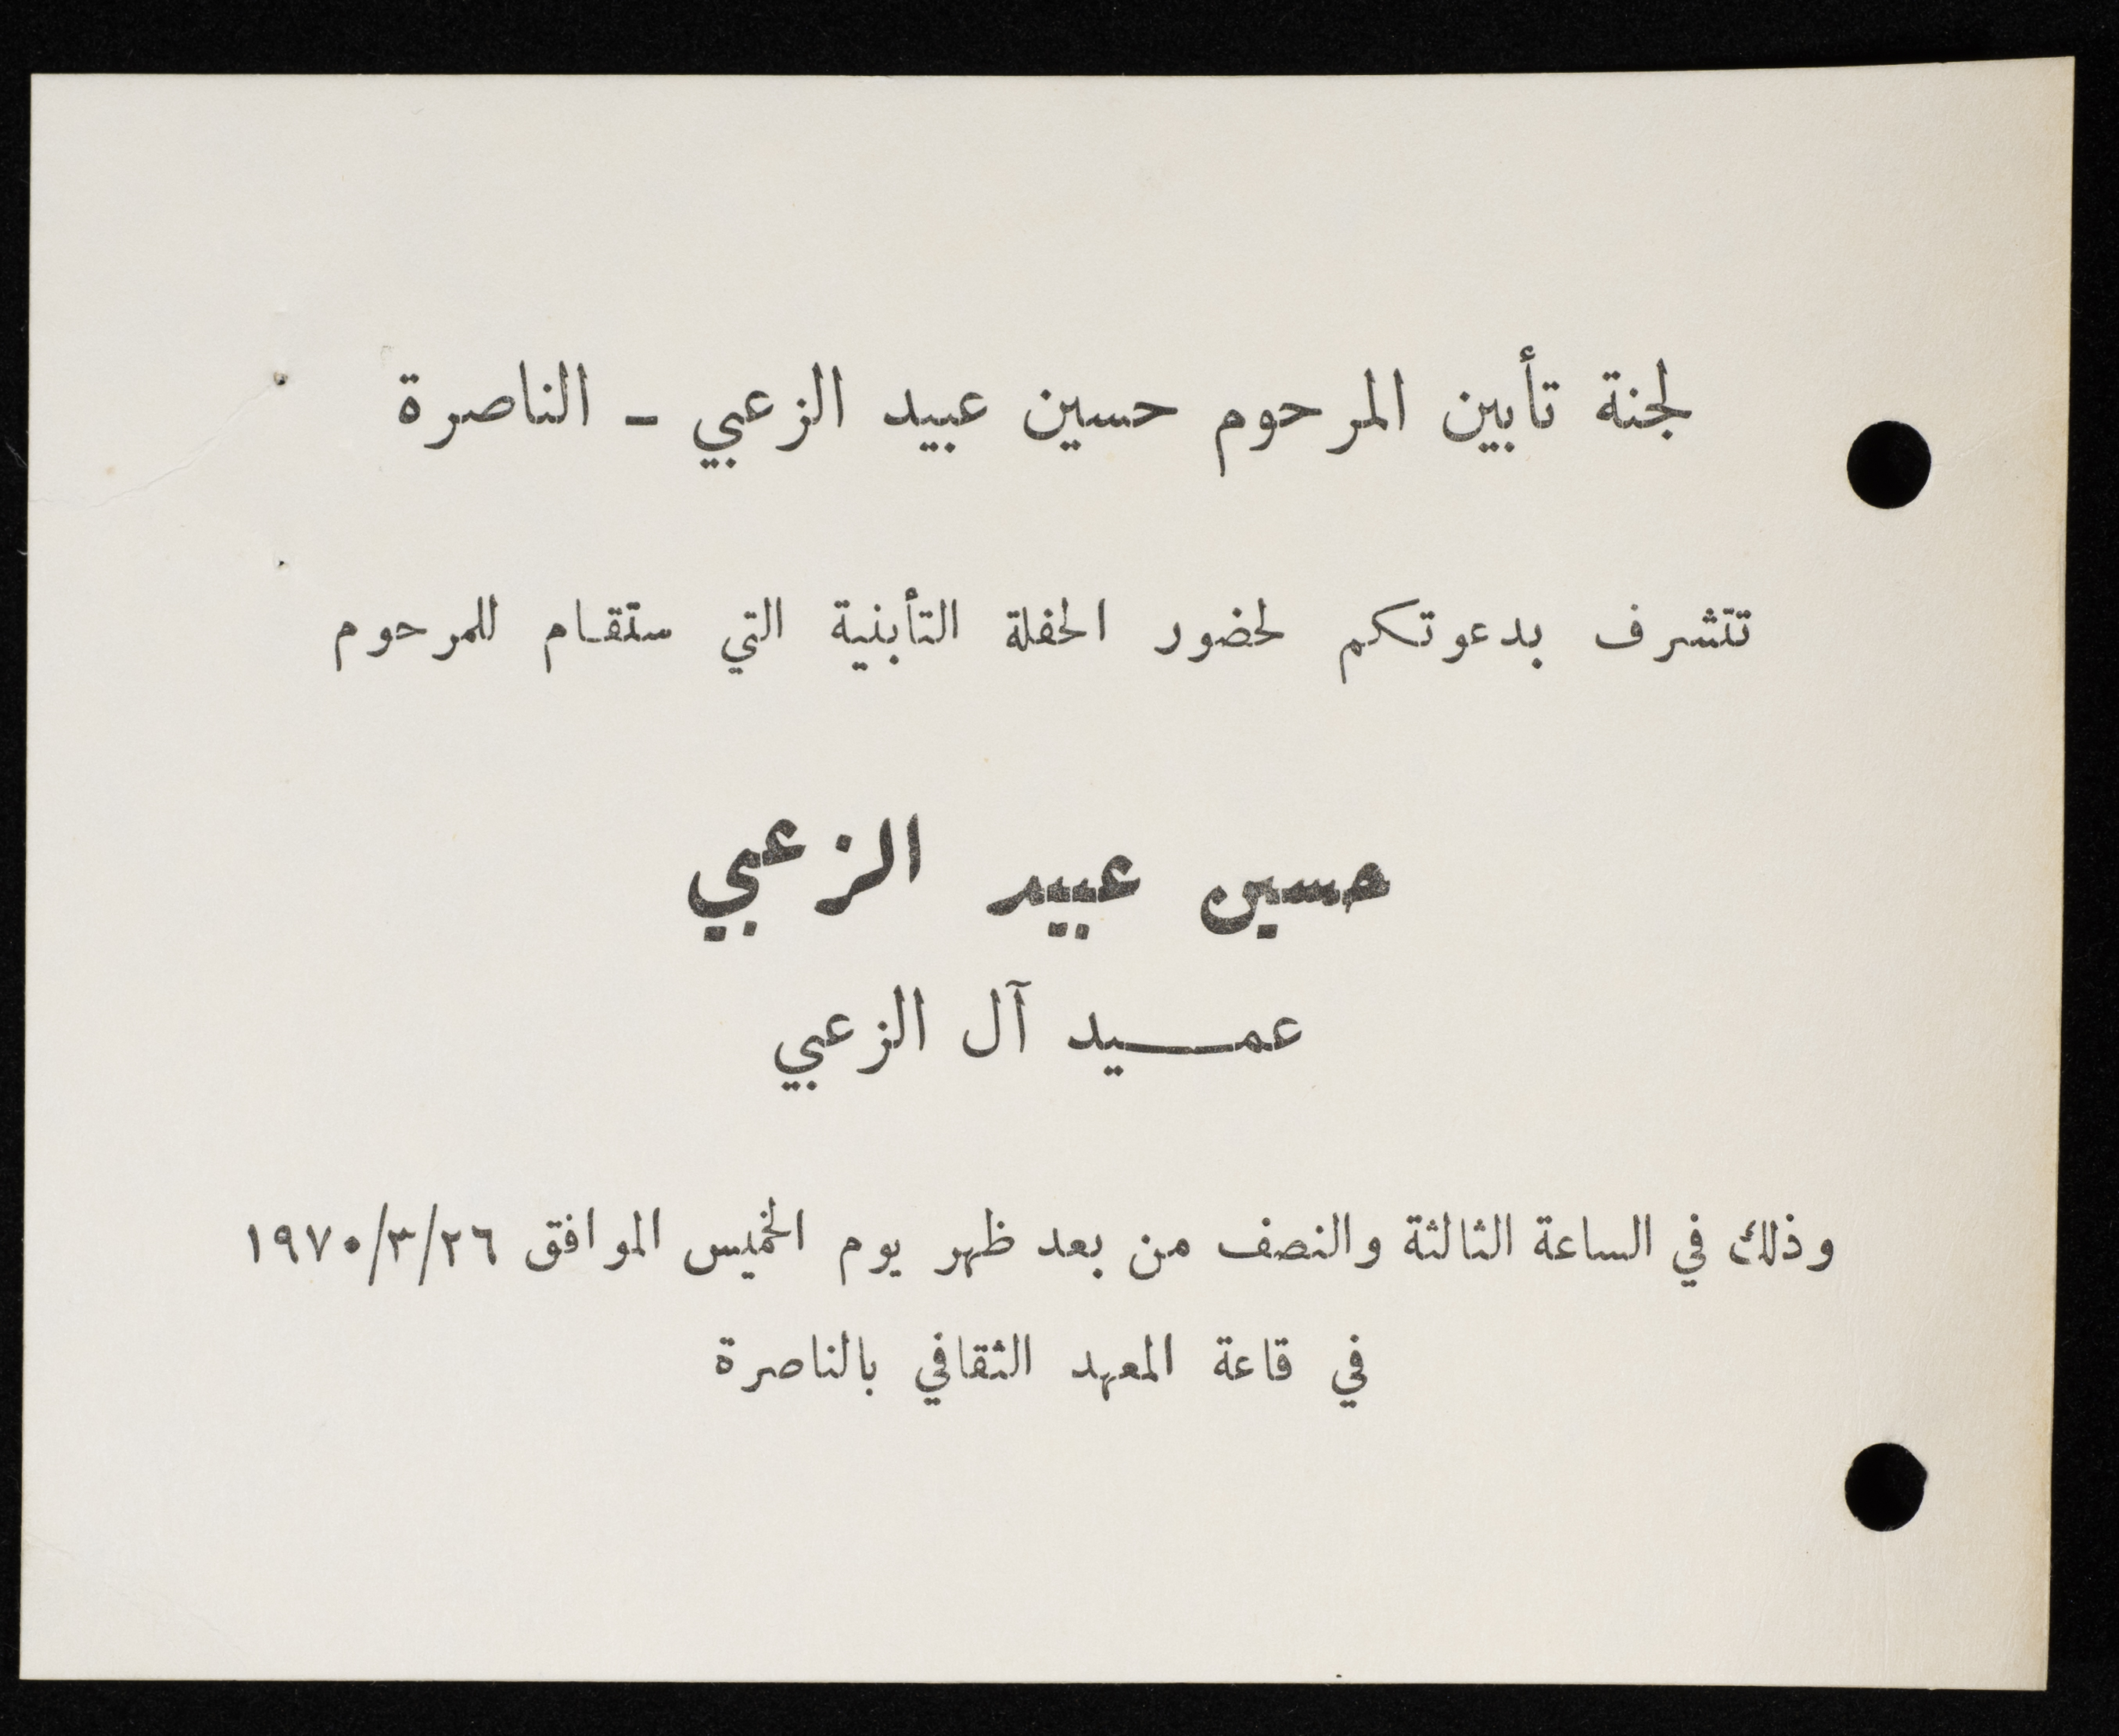 لجنة تأبين المرحوم حسين عبيد الزعبي - الناصرة
تتشرف بدعوتكم لحضور الحفلة التأبنية التي ستقام للمرحوم
حسين عبيد الزعبي
عميد آل الزعبي
وذلك في الساعة الثالثة والنصف من بعد ظهر يوم الخميس الموافق ١٩٧٠/٣/٢٦
في قاعة المعهد الثقافي بالناصرة